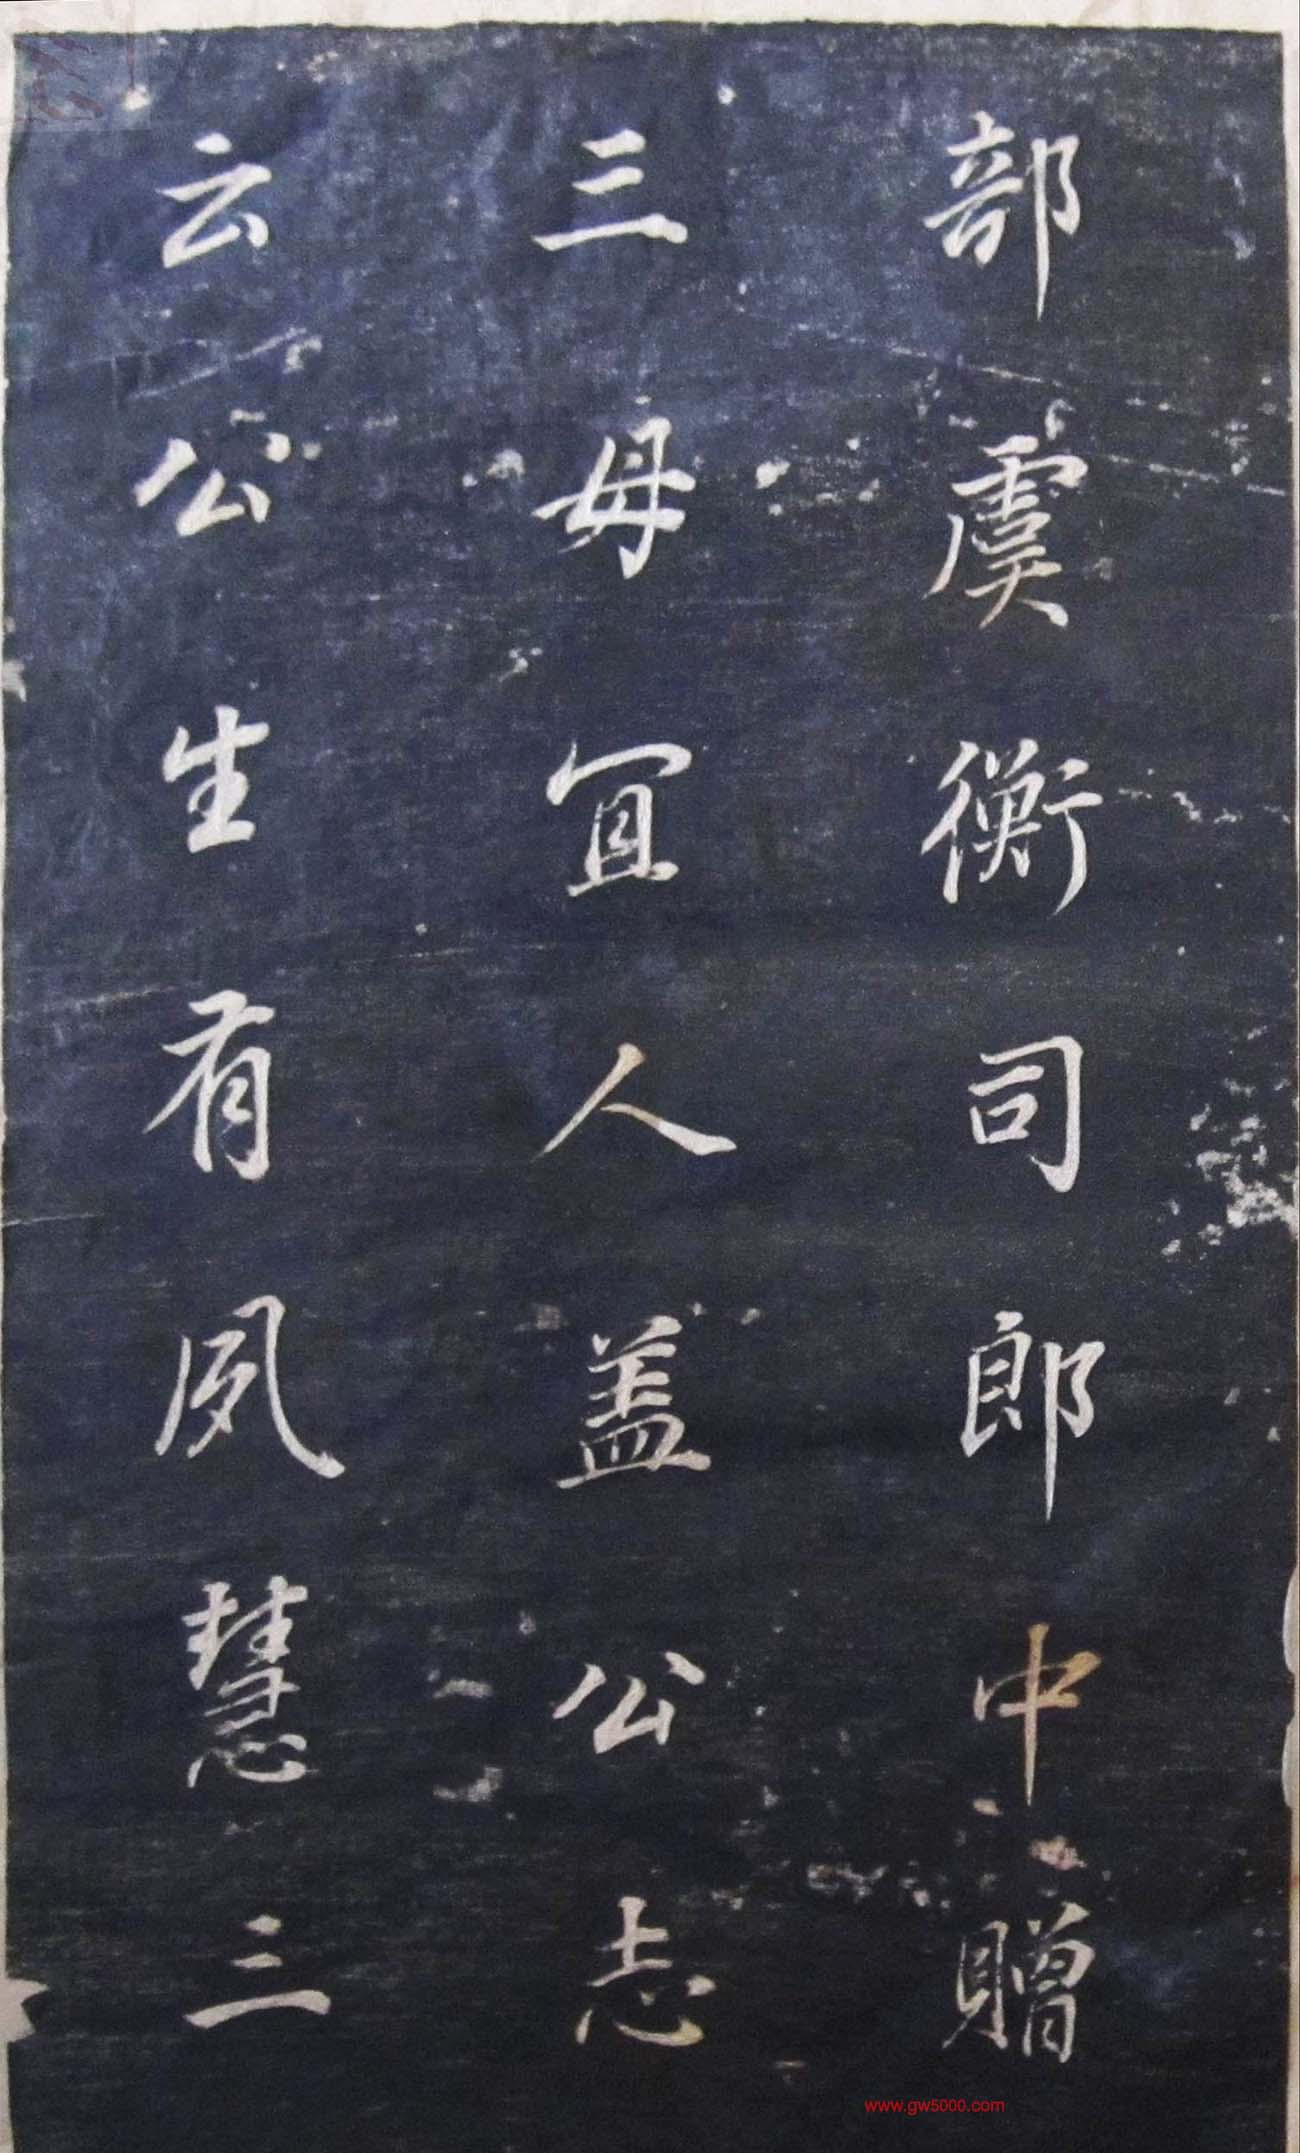 部虞衡司郎中贈
三母宜人盖公志
云公生有夙慧三
www.gw5000.com